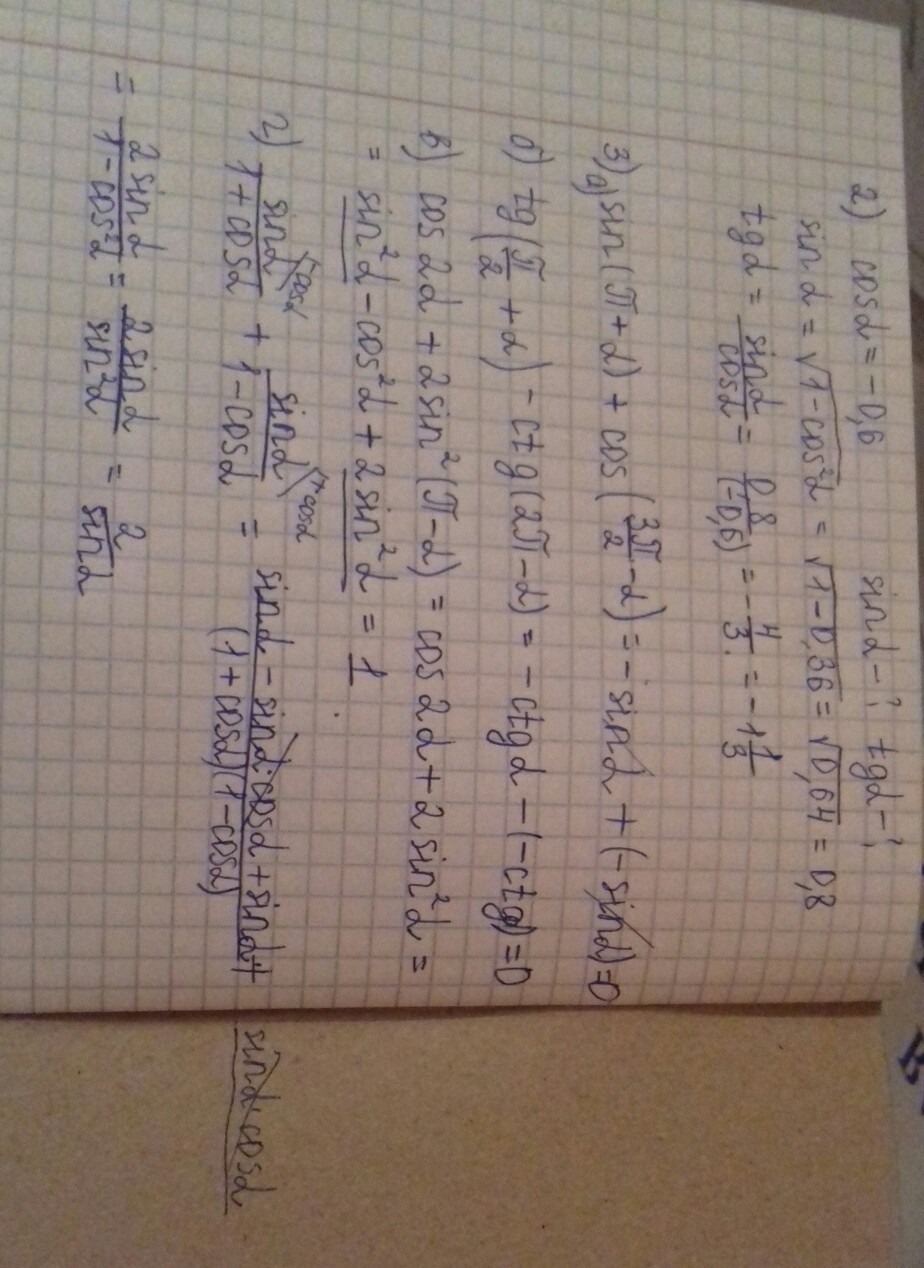 2) cosα = -0,6 sinα - ? tgα - ?
sinα = √1-cos²α = √1-0,36 = √0,64 = 0,8
tgα = sinα/cosα = 0,8/(-0,6) = -4/3 = -1 1/3
3) а) sin(π+α) + cos(3π/2 -α) = -sinα + (-sinα) = 0
б) tg(π/2 + α) - ctg(2π-α) = -ctgα - (-ctgα) = 0
в) cos2α + 2sin²(π-α) = cos2α + 2sin²α =
= sin²α - cos²α + 2sin²α = 1
г) sinα/1+cosα + sinα/1-cosα = sinα - sinα·cosα + sinα + sinα·cosα/(1+cosα)(1-cosα)
= 2sinα/1-cos²α = 2sinα/sin²α = 2/sinα